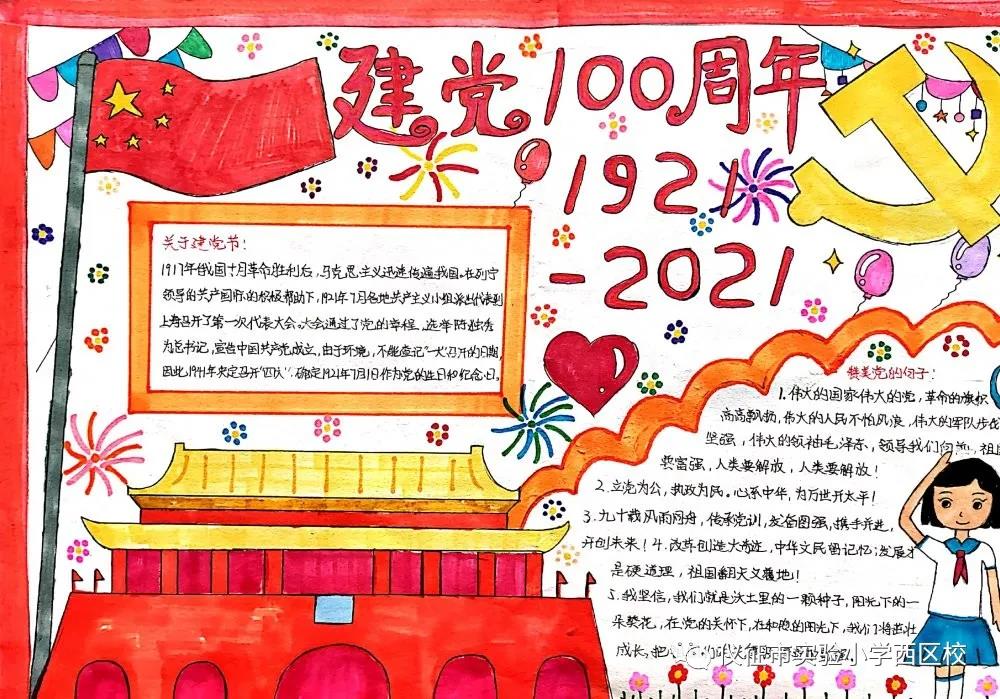 建党100周年
1921
-2021
关于建党节!
1917年俄国十月革命胜利后,马克思主义迅速传遍我国。在列宁
领导的共产国际的积极帮助下,1921年7月各地共产主义小组派出代表到
上海召开了第一次代表大会。大会通过了党的章程,选举陈独秀
为总书记,宣告中国共产党成立,由于环境,不能查记"一大"召开的日期,
因此1941年决定召开"四大",确定1921年7月1日作为党的生日和纪念日。
赞美党的句子:
1.伟大的国家伟大的党,革命的旗帜
高高飘扬,伟大的人民不怕风浪,伟大的军队步
坚强,伟大的领袖毛泽东,领导我们向前,祖国
要富强,人类要解放,人类要解放!
2.立党为公,执政为民。心系中华,为万世开太平!
3.九十载风雨同舟,传承党训,发奋图强,携手并进,
开创未来!4.改革创造大奇迹,中华文民留记忆;发展才
是硬道理,祖国翻天又覆地!
5.我坚信,我们就是沃土里的一颗种子,阳光下的一
朵葵花,在党的关怀下,在和隐的阳光下,我们将茁壮
成长,把
仪征市实验小学西区校